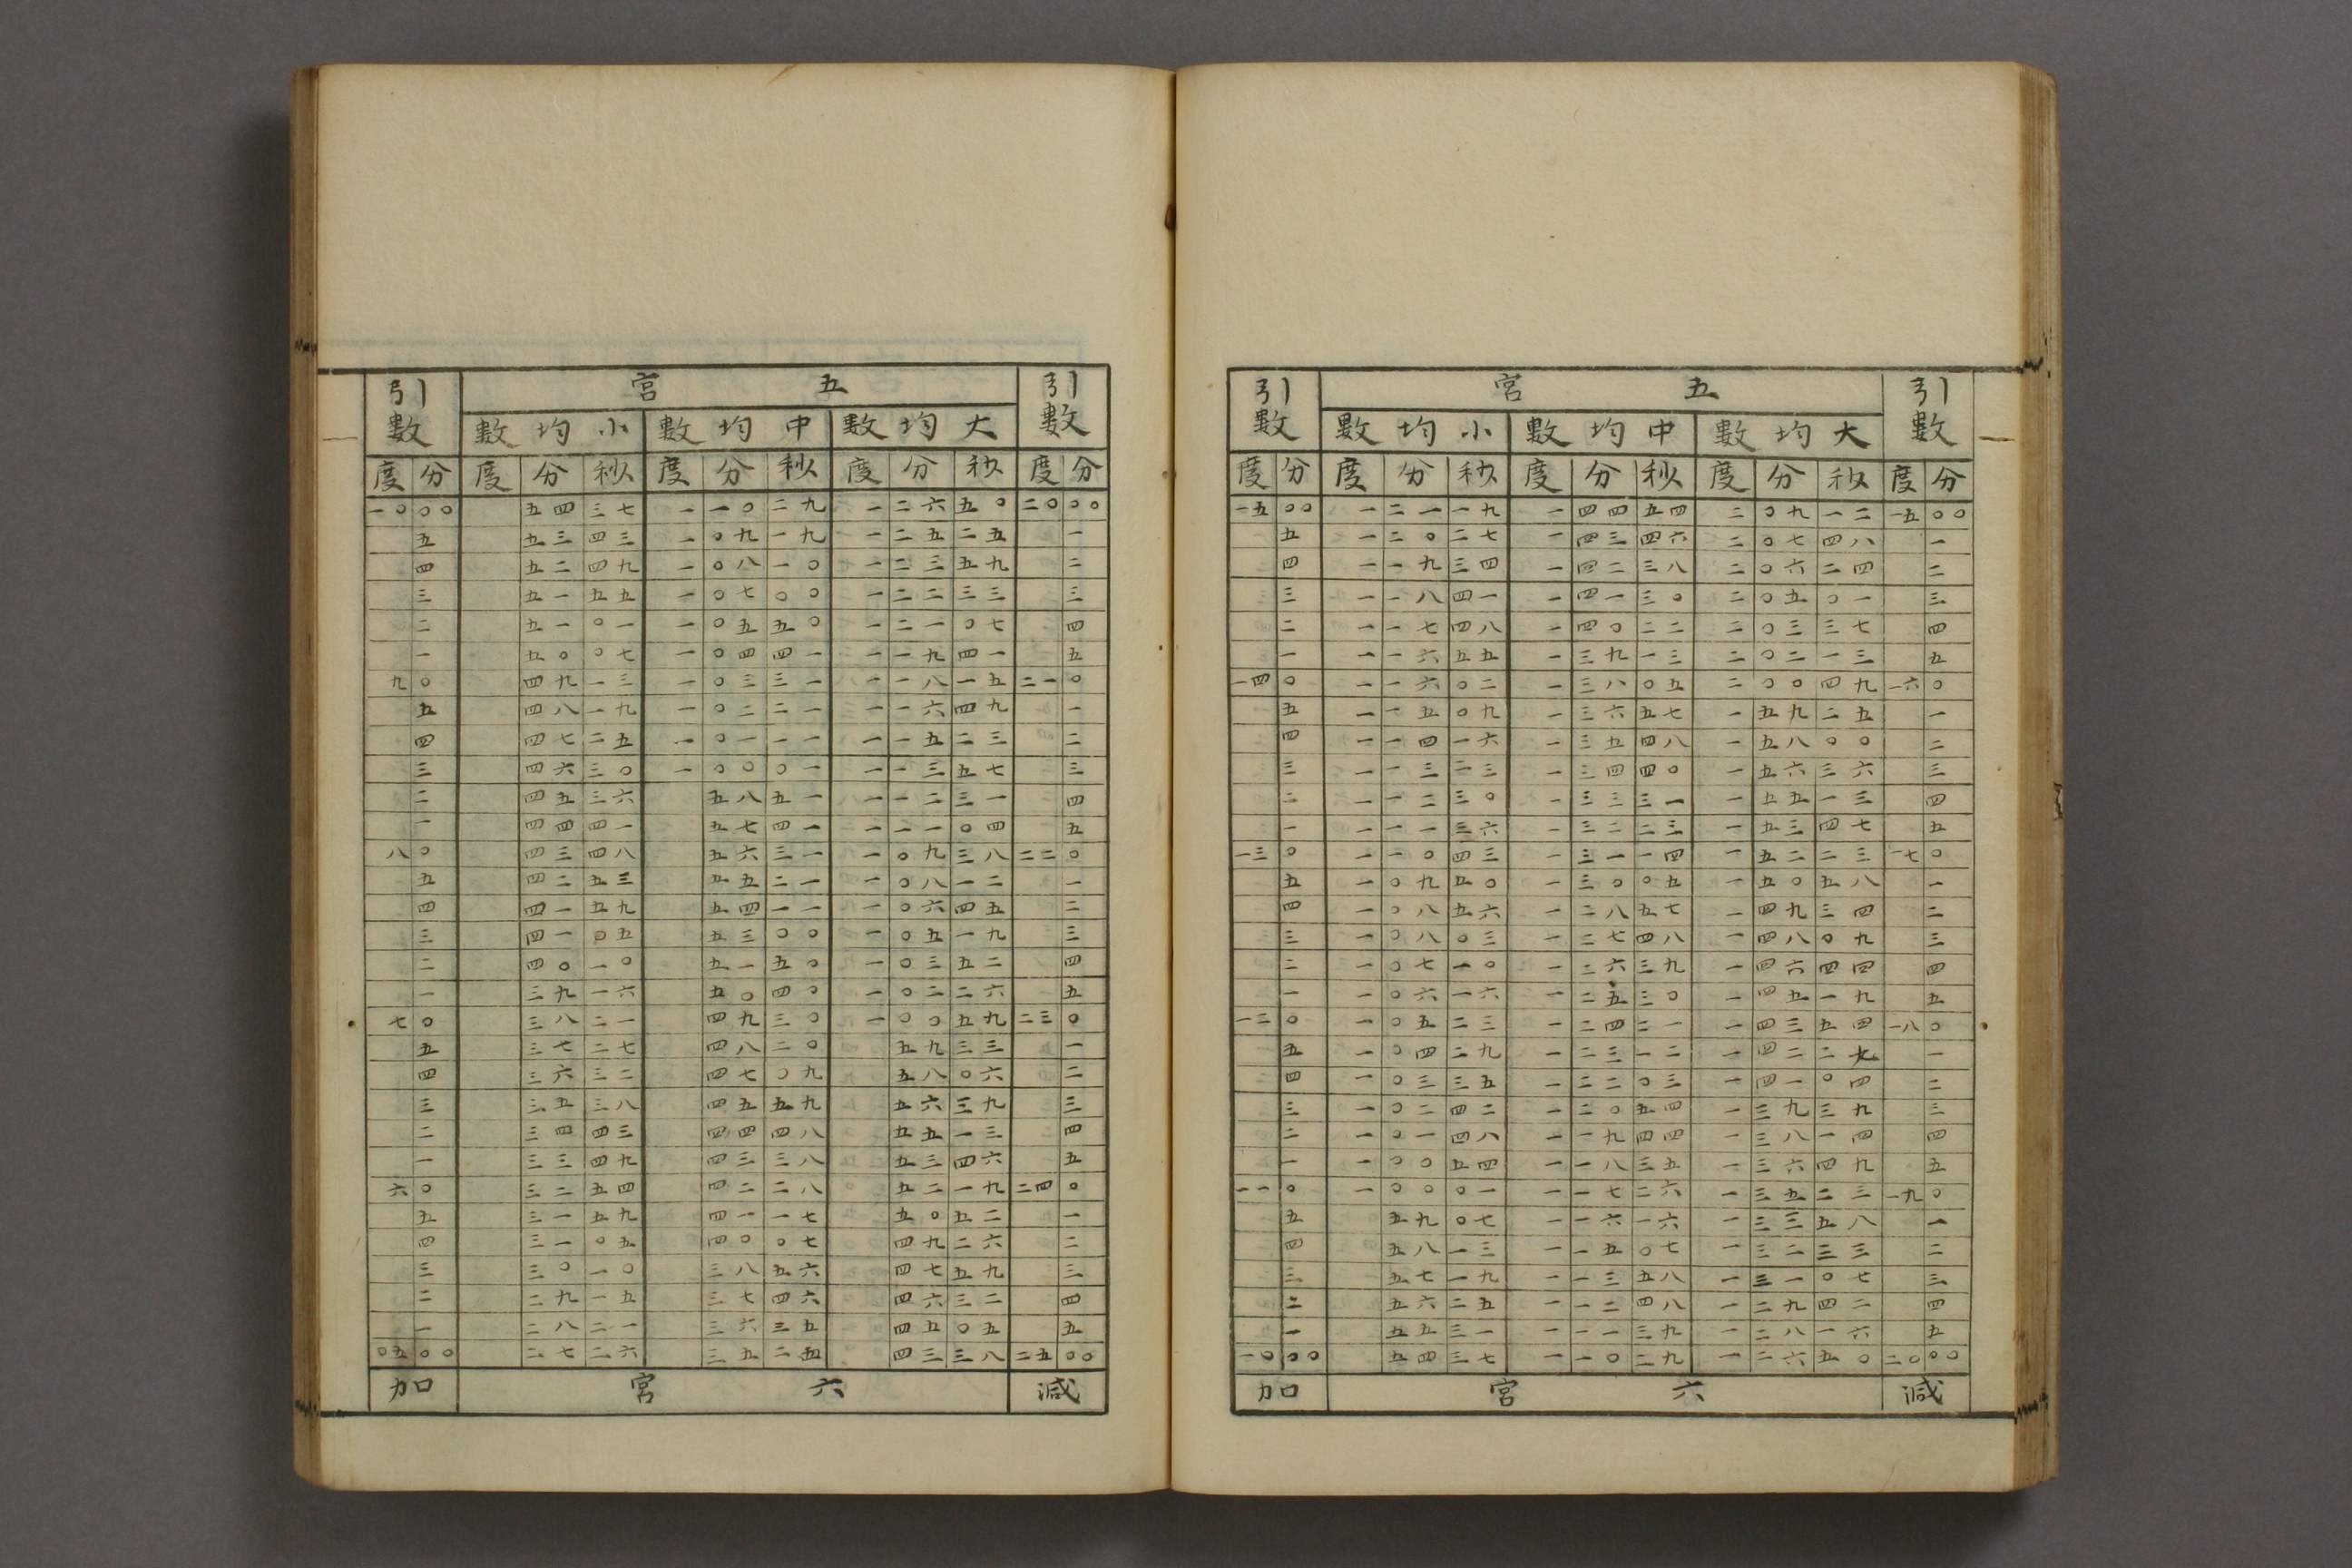 引數 五宮 引數
大均數 中均數 小均數
度 分 度 分 秒 度 分 秒 度 分 秒 度 分
一五 〇〇 一 二一 一九 一 四四 五四 二 〇九 一二 一五 〇〇
五 一 二〇 二七 一 四三 四六 二 〇七 四八 一
四 一 一九 三四 一 四二 三八 二 〇六 二四 二
三 一 一八 四一 一 四一 三〇 二 〇五 〇一 三
二 一 一七 四八 一 四〇 二二 二 〇三 三七 四
一 一 一六 五五 一 三九 一三 二 〇二 一三 五
一四 〇 一 一六 〇二 一 三八 〇五 二 〇〇 四九 一六 〇
五 一 一五 〇九 一 三六 五七 一 五九 二五 一
四 一 一四 一六 一 三五 四八 一 五八 〇〇 二
三 一 一三 二三 一 三四 四〇 一 五六 三六 三
二 一 一二 三〇 一 三三 三一 一 五五 一三 四
一 一 一一 三六 一 三二 二三 一 五三 四七 五
一三 〇 一 一〇 四三 一 三一 一四 一 五二 二三 一七 〇
五 一 〇九 五〇 一 三〇 〇五 一 五〇 五八 一
四 一 〇八 五六 一 二八 五七 一 四九 三四 二
三 一 〇八 〇三 一 二七 四八 一 四八 〇九 三
二 一 〇七 一〇 一 二六 三九 一 四六 四四 四
一 一 〇六 一六 一 二五 三〇 一 四五 一九 五
一二 〇 一 〇五 二三 一 二四 二一 一 四三 五四 一八 〇
五 一 〇四 二九 一 二三 一二 一 四二 二九 一
四 一 〇三 三五 一 二二 〇三 一 四一 〇四 二
三 一 〇二 四二 一 二〇 五四 一 三九 三九 三
二 一 〇一 四八 一 一九 四四 一 三八 一四 四
一 一 〇〇 五四 一 一八 三五 一 三六 四九 五
一一 〇 一 〇〇 〇一 一 一七 二六 一 三五 二三 一九 〇
五 五九 〇七 一 一六 一六 一 三三 五八 一
四 五八 一三 一 一五 〇七 一 三二 三三 二
三 五七 一九 一 一三 五八 一 三一 〇七 三
二 五六 二五 一 一二 四八 一 二九 四二 四
一 五五 三一 一 一一 三九 一 二八 一六 五
一〇 〇〇 五四 三七 一 一〇 二九 一 二六 五〇 二〇 〇〇
加 六宮 減
引數 五宮 引數
大均數 中均數 小均數
度 分 度 分 秒 度 分 秒 度 分 秒 度 分
一〇 〇〇 五四 三七 一 一〇 二九 一 二六 五〇 二〇 〇〇
五 五三 四三 一 〇九 一九 一 二五 二五 一
四 五二 四九 一 〇八 一〇 一 二三 五九 二
三 五一 五五 一 〇七 〇〇 一 二二 三三 三
二 五一 〇一 一 〇五 五〇 一 二一 〇七 四
一 五〇 〇七 一 〇四 四一 一 一九 四一 五
九 〇 四九 一三 一 〇三 三一 一 一八 一五 二一 〇
五 四八 一九 一 〇二 二一 一 一六 四九 一
四 四七 二五 一 〇一 一一 一 一五 二三 二
三 四六 三〇 一 〇〇 〇一 一 一三 五七 三
二 四五 三六 五八 五一 一 一二 三一 四
一 四四 四一 五七 四一 一 一一 〇四 五
八 〇 四三 四八 五六 三一 一 〇九 三八 二二 〇
五 四二 五三 五五 二一 一 〇八 一二 一
四 四一 五九 五四 一一 一 〇六 四五 二
三 四一 〇五 五三 〇〇 一 〇五 一九 三
二 四〇 一〇 五一 五〇 一 〇三 五二 四
一 三九 一六 五〇 四〇 一 〇二 二六 五
七 〇 三八 二一 四九 三〇 一 〇〇 五九 二三 〇
五 三七 二七 四八 二〇 五九 三三 一
四 三六 三二 四七 〇九 五八 〇六 二
三 三五 三八 四五 五九 五六 三九 三
二 三四 四三 四四 四八 五五 一三 四
一 三三 四九 四三 三八 五三 四六 五
六 〇 三二 五四 四二 二八 五二 一九 二四 〇
五 三一 五九 四一 一七 五〇 五二 一
四 三一 〇五 四〇 〇七 四九 二六 二
三 三〇 一〇 三八 五六 四七 五九 三
二 二九 一五 三七 四六 四六 三二 四
一 二八 二一 三六 三五 四五 〇五 五
〇五 〇〇 二七 二六 三五 二五 四三 三八 二五 〇〇
加 六宮 減